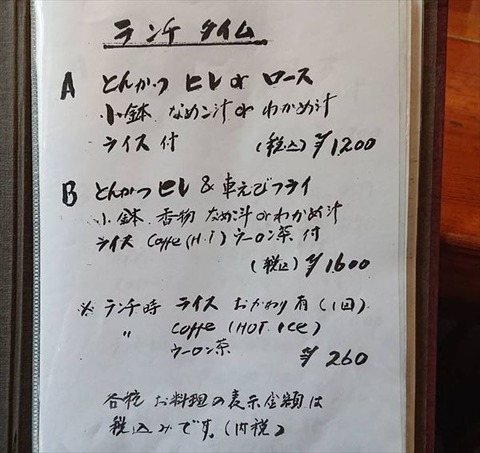 ランチ タイム
A とんかつ ヒレ or ロース
小鉢 なめこ汁 or わかめ汁
ライス 付 (税込) ¥1,200
B とんかつ ヒレ & 車えびフライ
小鉢 香物 なめこ汁 or わかめ汁
ライス Coffe (H・I) ウーロン茶 付
(税込) ¥1,600
※ ランチ時 ライス おかわり 有 (1回)
〃 Coffe (HOT. Ice)
ウーロン茶 ¥260
各種 お料理の表示金額は
税込みです。(内税)